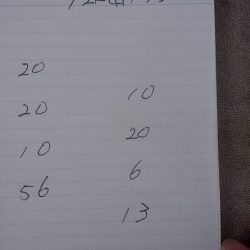 20
10
20
20
10
6
56
13